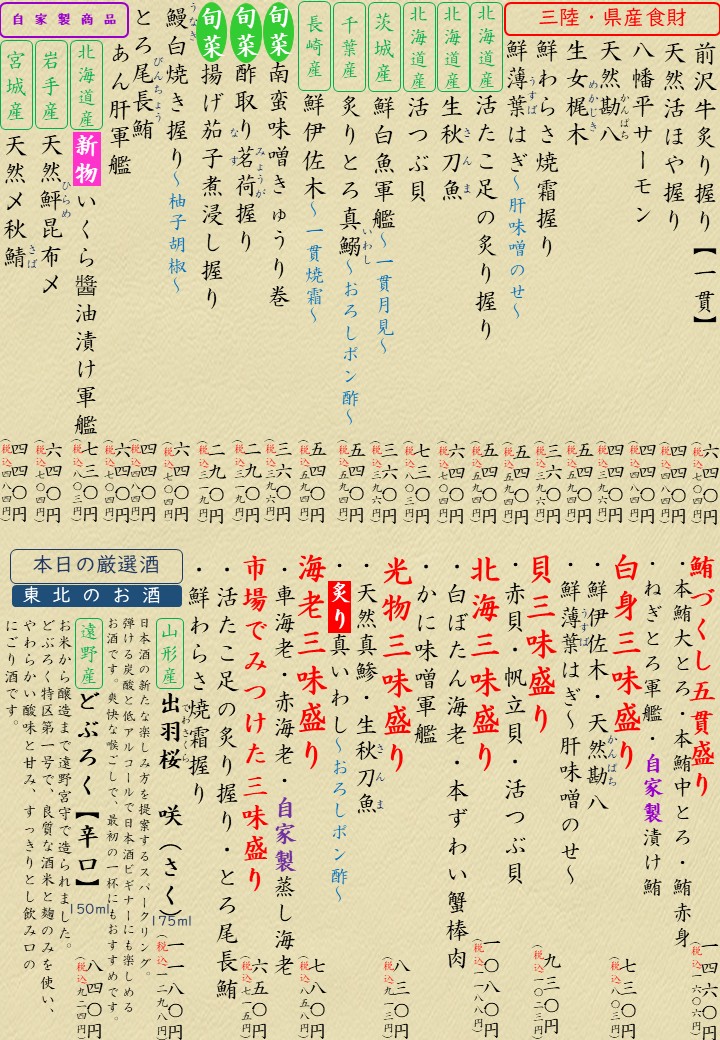 三陸・県産食財
前沢牛炙り握り【一貫】 六四〇円(税込七〇四円)
天然活ほや握り 四四〇円(税込四八四円)
八幡平サーモン 四四〇円(税込四八四円)
天然勘八 かんぱち
生女梶木 めかじき 五四〇円(税込五九四円)
鮮わらさ焼霜握り 三六〇円(税込三九六円)
鮮薄葉はぎ うすば ～肝味噌のせ～ 五四〇円(税込五九四円)
北海道産 活たこ足の炙り握り 五四〇円(税込五九四円)
北海道産 生秋刀魚 さんま 六四〇円(税込七〇四円)
北海道産 活つぶ貝 七三〇円(税込八〇三円)
茨城産 鮮白魚軍艦～一貫月見～ 三六〇円(税込三九六円)
千葉産 炙りとろ真鰯 いわし ～おろしポン酢～ 五四〇円(税込五九四円)
長崎産 鮮伊佐木～一貫焼霜～ 五四〇円(税込五九四円)
旬菜 南蛮味噌きゅうり巻 三六〇円(税込三九六円)
旬菜 酢取り茗荷握り みょうが 二九〇円(税込三一九円)
旬菜 揚げ茄子煮浸し握り なす 二九〇円(税込三一九円)
鰻白焼き握り うなぎ ～柚子胡椒～ 六四〇円(税込七〇四円)
とろ尾長鮪 びんちょう 四四〇円(税込四八四円)
自家製商品
あん肝軍艦 六四〇円(税込七〇四円)
北海道産 新物 いくら醤油漬け軍艦 七三〇円(税込八〇三円)
岩手産 天然鮃昆布〆 ひらめ 六四〇円(税込七〇四円)
宮城産 天然〆秋鯖 さば 四四〇円(税込四八四円)
鮪づくし五貫盛り 一四六〇円(税込一六〇六円)
・本鮪大とろ・本鮪中とろ・鮪赤身
・ねぎとろ軍艦・自家製漬け鮪
白身三味盛り 七三〇円(税込八〇三円)
・鮮伊佐木・天然勘八 かんぱち
・鮮薄葉はぎ うすば ～肝味噌のせ～
貝三味盛り 九三〇円(税込一〇二三円)
・赤貝・帆立貝・活つぶ貝
北海三味盛り 一〇八〇円(税込一一八八円)
・白ぼたん海老・本ずわい蟹棒肉
・かに味噌軍艦
光物三味盛り 八三〇円(税込九一三円)
・天然真鯵・生秋刀魚 さんま
・炙り真いわし～おろしポン酢～
海老三味盛り 七八〇円(税込八五八円)
・車海老・赤海老・自家製蒸し海老
市場でみつけた三味盛り 六五〇円(税込七一五円)
・活たこ足の炙り握り・とろ尾長鮪
・鮮わらさ焼霜握り
本日の厳選酒
東北のお酒
山形産 出羽桜 でわざくら 咲(さく) 175ml 一一八〇円(税込一二九八円)
日本酒の新たな楽しみ方を提案するスパークリング。
弾ける炭酸と低アルコールで日本酒ビギナーにも楽しめる
お酒です。爽快な喉ごしで、最初の一杯にもおすすめです。
遠野産 どぶろく【辛口】 150ml 八四〇円(税込九二四円)
お米から醸造まで遠野宮守で造られました。
どぶろく特区第一号で、良質な酒米と麹のみを使い、
やわらかい酸味と甘み、すっきりとし飲み口の
にごり酒です。